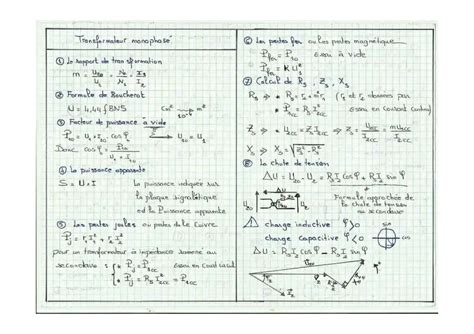 Transformateur monophasé
① Le rapport de transformation
m = U₂₀/U₁ = N₂/N₁ = I₁/I₂
② Formule de Boucherot
U = 4,44 f B N S    Cm² → m²
10⁻⁴
③ Facteur de puissance à vide
P₁₀ = U₁ × I₁₀ cos φ → U₁₀ = U₁
Donc cos φ = P₁₀ / U₁ × I₁₀
④ La puissance apparente
S = U × I    la puissance indiquée sur
la plaque signalétique
est la Puissance apparente
⑤ Les pertes joules ou pertes de Cuivre
Pj = r₁I₁² + r₂I₂²
pour un transformateur à impédance ramené au
secondaire : * Pj = P₁cc    essai en court circuit
* Pj = Rs I₂cc² = P₁cc
⑥ Les pertes fer ou les pertes magnétique
Pfer = P₁₀    essai à vide
Pfer = K U₁²
⑦ Calcul de Rs, Zs, Xs
Zs = U₂cc/I₂cc = mU₁cc/I₂cc
Xs = √Zs² - Rs²
⑧ La chute de tension
ΔU = U₂₀ - U₂ = Rs I₂ cos φ + Xs I₂ sin φ
Formule approchée de
la chute de tension
au secondaire
charge inductive φ > 0
charge capacitive φ < 0
sin
cos
ΔU = Rs I₂ cos φ - Xs I₂ sin φ